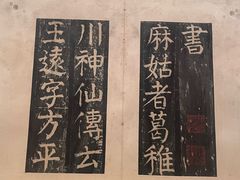 書
麻姑者葛稚
川神仙傳云
王遠字方平